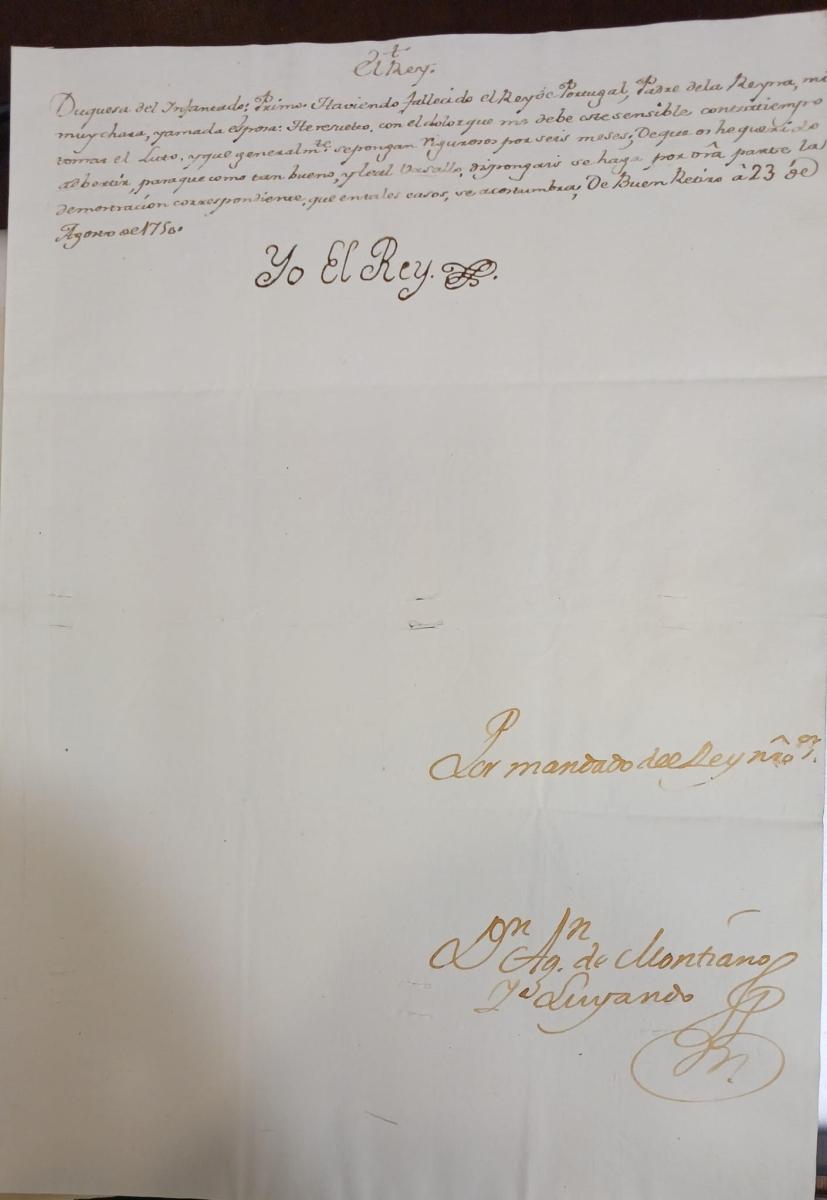 †
El Rey.
Duquesa del Infantado: Primo. Haviendo fallecido el Rey de Portugal, Padre dela Reyna, mi
muy chara, yamada esposa: He resuelto, con el dolor que me debe este sensible contratiempo
tomar el Luto, y que generalmte. se pongan rigurosos por seis meses, De que os he querido
adbertir, para que como tan bueno, y leal Vasallo, dispongais se haga por vrã parte la
demostracion correspondiente, que en tales casos, se acostumbra; De Buen Retiro â 23 de
Agosto de 1750.
Yo El Rey.
Por mandado del Rey nrõ sr.
Dn Agn. de Montiano
Ya Luyando